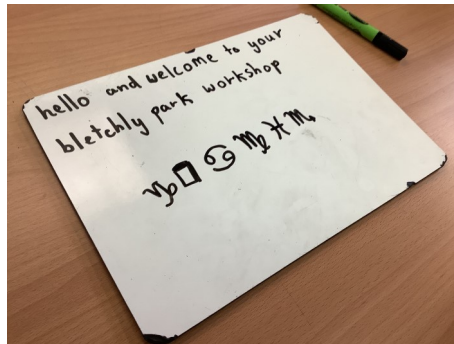 hello and welcome to your
bletchly park workshop
♑︎□♋︎♍︎♓︎♏︎